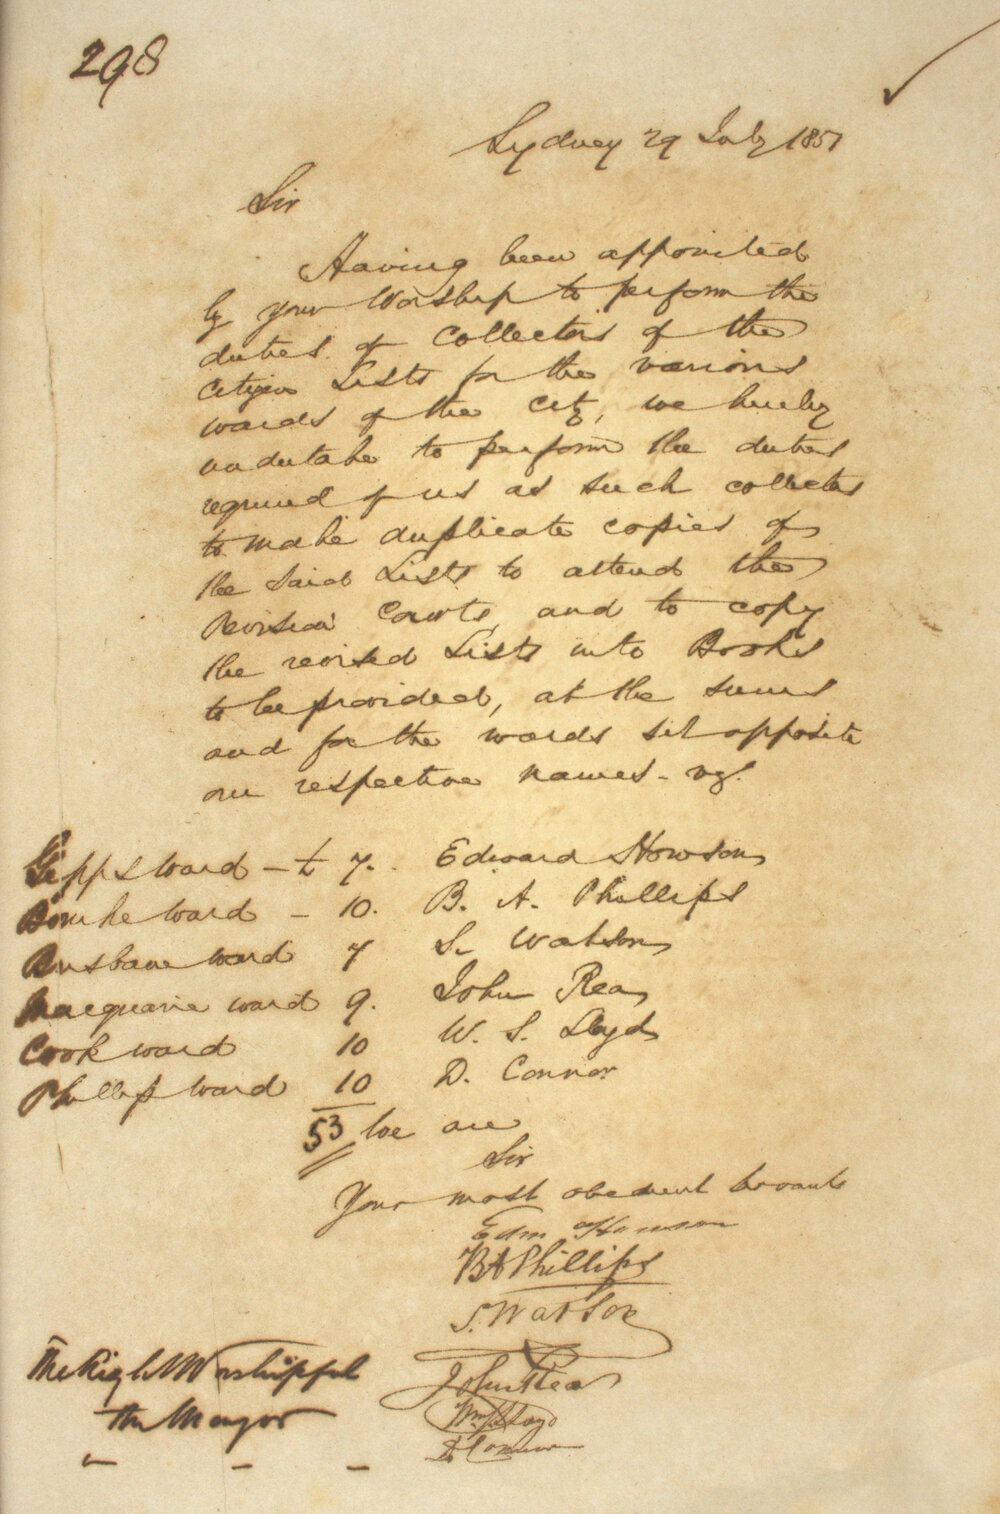 298
Sydney 29 July 1851
Sir
Having been appointed
by your Worship to perform the
duties of Collectors of the
Citizen Lists for the various
wards of the City, we hereby
undertake to perform the duties
required of us as such collectors
to make duplicate copies of
the said Lists to attend the
Revision Courts, and to copy
the revised Lists into Books
to be provided, at the sums
and for the wards set opposite
our respective names - viz.
Gipps Ward - £ 7. Edward Howson
Bourke Ward - 10. B. A. Phillips
Brisbane Ward 7 S. Watson
Macquarie Ward 9. John Rea
Cook Ward 10 W. S. Lloyd
Phillip Ward 10 D. Connor
53 We are
Sir
Your most obedient Servants
Edm Howson
B A Phillips
S. Watson
John Rea
Wm S Lloyd
D Connor
The Right Worshipful
The Mayor